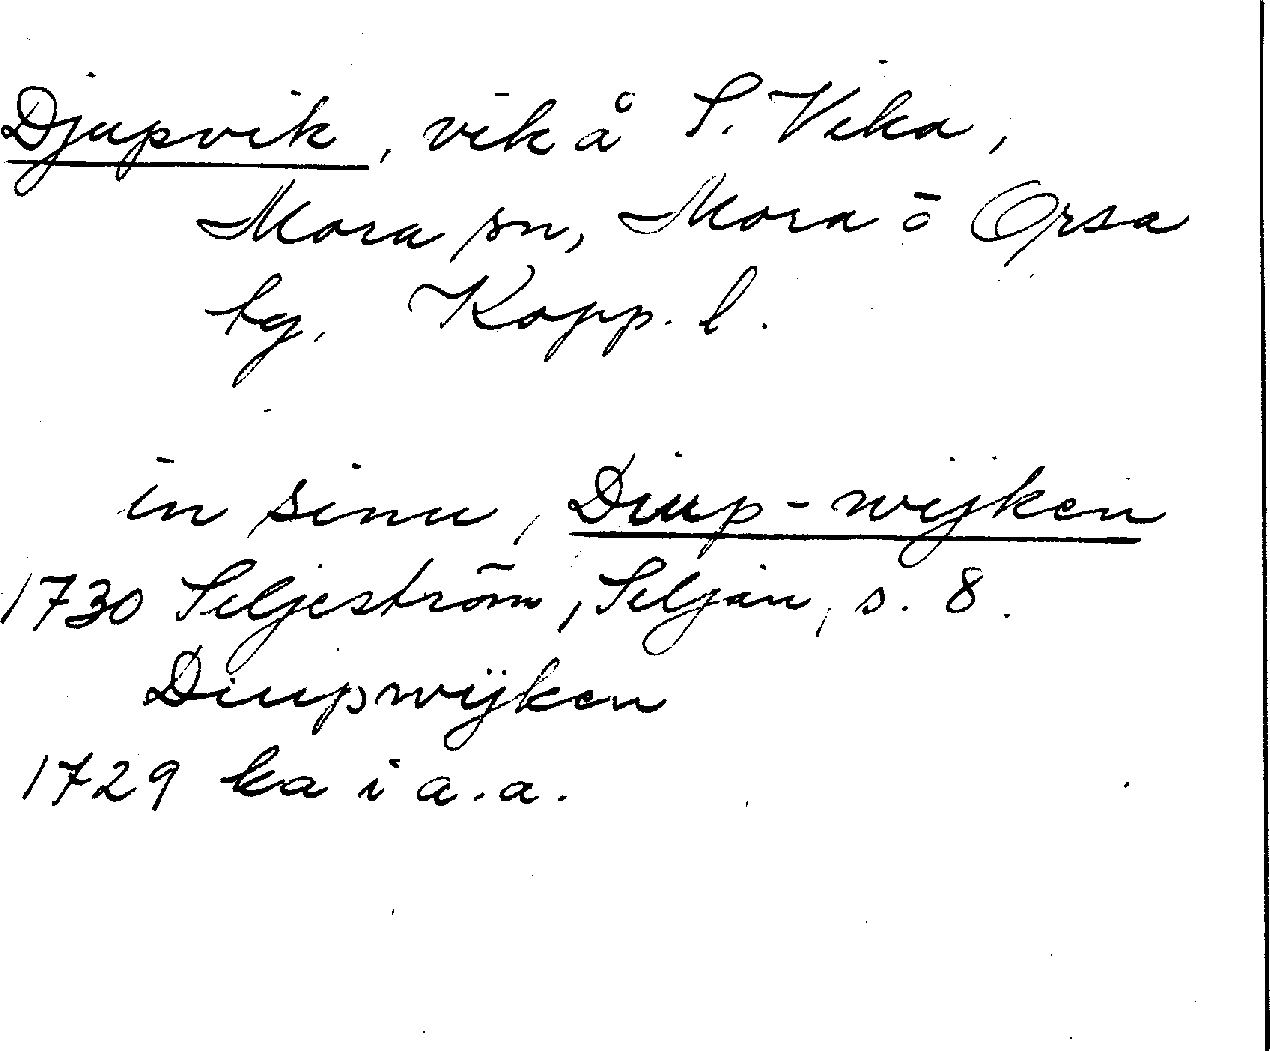 Djupvik, vik å S. Vika,
Mora sn, Mora o Orsa
tg, Kopp. l.
in sinu, Diup-wijken
1730 Seljeström, Seljan, s. 8.
Diupwijken
1729 ka i a.a.